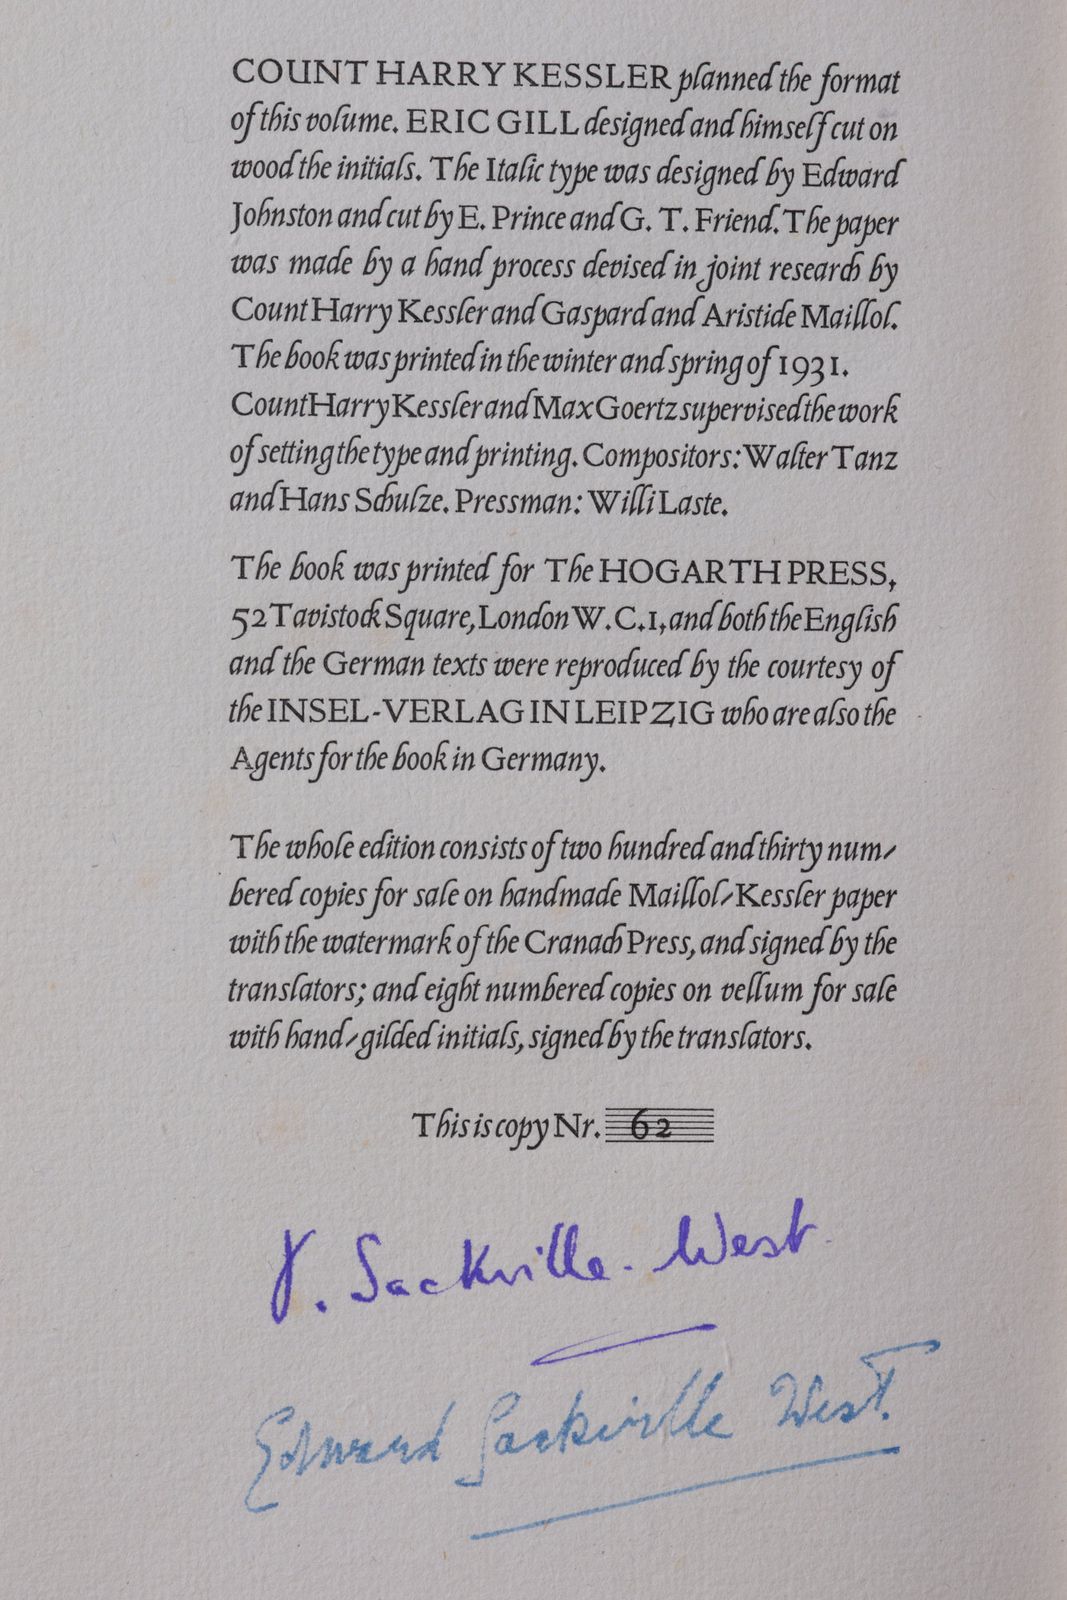 COUNT HARRY KESSLER planned the format
of this volume. ERIC GILL designed and himself cut on
wood the initials. The Italic type was designed by Edward
Johnston and cut by E. Prince and G. T. Friend. The paper
was made by a hand process devised in joint research by
Count Harry Kessler and Gaspard and Aristide Maillol.
The book was printed in the winter and spring of 1931.
Count Harry Kessler and Max Goertz supervised the work
of setting the type and printing. Compositors: Walter Tanz
and Hans Schulze. Pressman: Willi Laste.
The book was printed for The HOGARTH PRESS,
52 Tavistock Square, London W.C.1, and both the English
and the German texts were reproduced by the courtesy of
the INSEL-VERLAG IN LEIPZIG who are also the
Agents for the book in Germany.
The whole edition consists of two hundred and thirty num-
bered copies for sale on handmade Maillol-Kessler paper
with the watermark of the Cranach Press, and signed by the
translators; and eight numbered copies on vellum for sale
with hand-gilded initials, signed by the translators.
This is copy Nr. 62
V. Sackville-West.
Edward Sackville West.